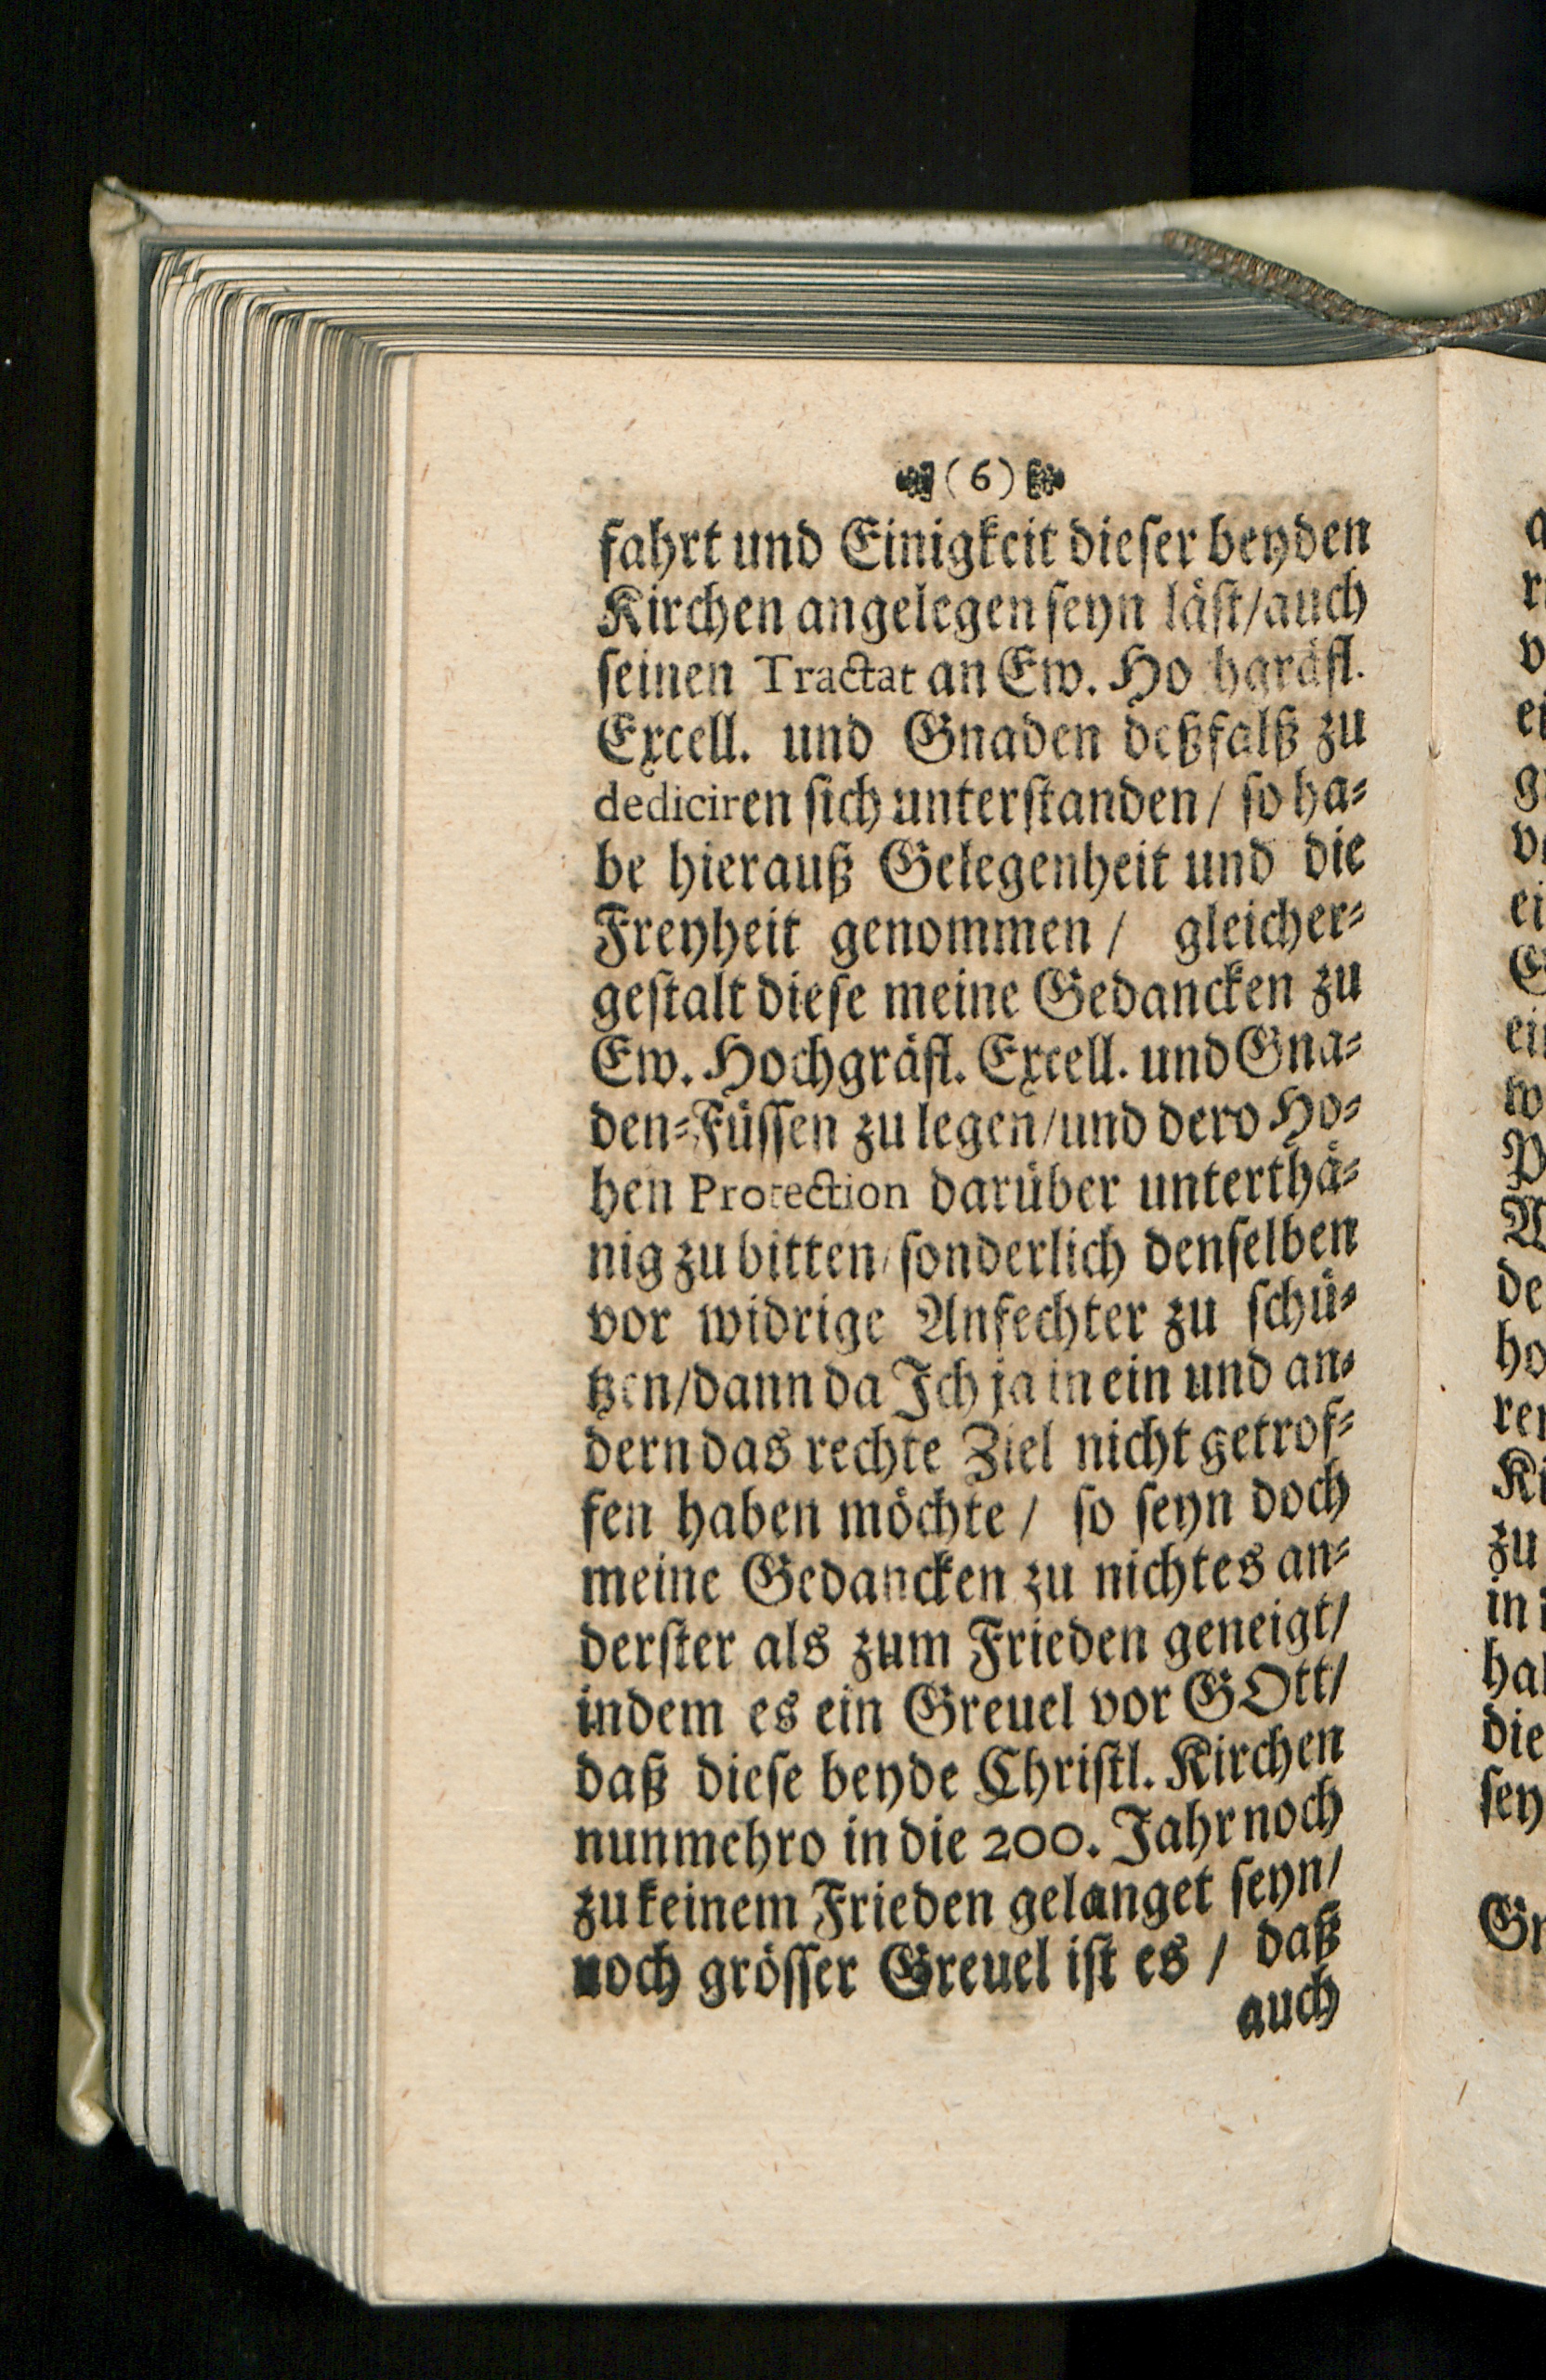 (6)
fahrt und Einigkeit dieser beyden
Kirchen angelegen seyn läst/auch
seinen Tractat an Ew. Ho hgräfl.
Excell. und Gnaden deßfalß zu
dediciren sich unterstanden / so ha-
be hierauß Gelegenheit und die
Freyheit genommen / gleicher-
gestalt diese meine Gedancken zu
Ew. Hochgräfl. Excell. und Gna-
den-Füssen zu legen/und dero Ho-
hen Protection darüber unterthä-
nig zu bitten/sonderlich denselben
vor widrige Anfechter zu schü-
tzen/dann da Ich ja in ein und an-
dern das rechte Ziel nicht getrof-
fen haben möchte / so seyn doch
meine Gedancken zu nichtes an-
derster als zum Frieden geneigt/
indem es ein Greuel vor GOtt/
daß diese beyde Christl. Kirchen
nunmehro in die 200. Jahr noch
zu keinem Frieden gelanget seyn/
noch grösser Greuel ist es / daß
auch